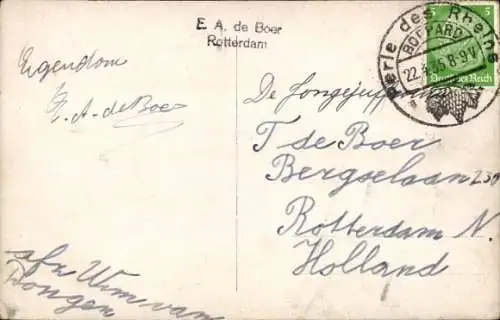 E. A. de Boer
Rotterdam
Perle des Rheins
BOPPARD
22.3.35.8-9V
5 5
Deutsches Reich
Eigendom
E. A. de Boer
De Jongejuffrouw
T de Boer
Bergselaan 239
Rotterdam N.
Holland
afz Wim van
Dongen